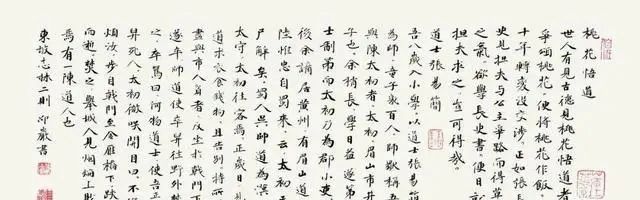 桃花悟道
世人有見古德見桃花悟道者
爭頌桃花便將桃花作飯
十年轉沒交涉正如張長
史見擔夫與公主爭路而得草
之氣欲學長史書便日就
擔夫求之豈可得哉
道士張易簡
吾八歲入小學以道士張易簡
為師童子幾百人師獨稱吾
與陳太初者太初眉山市井
子也余稍長學日益遂第
士制策而太初乃為郡小吏
後余謫居黃州有眉山道
陸惟忠自蜀來云太初
尸解矣蜀人吳師道為漢
太守太初往客焉正歲日
道求衣食錢物且告別持所
盡與市人貧者反坐於戟門下
遂卒師道使卒舁往野外
之卒罵曰何物道士使吾正
舁死人太初微笑開目曰不
煩汝步自戟門至金雁橋下趺
而逝焚之舉城人見煙焰上眇
焉有一陳道人也
東坡志林二則 書